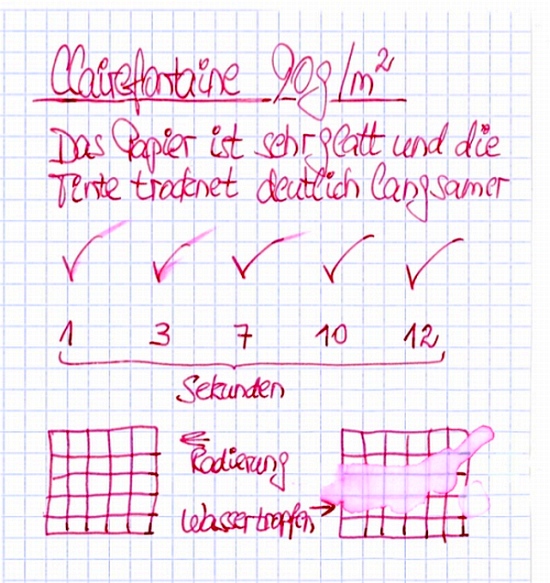 Clairefontaine 90g/m²
Das Papier ist sehr glatt und die
Tinte trocknet deutlich langsamer
1 3 7 10 12
Sekunden
Radierung
Wassertropfen